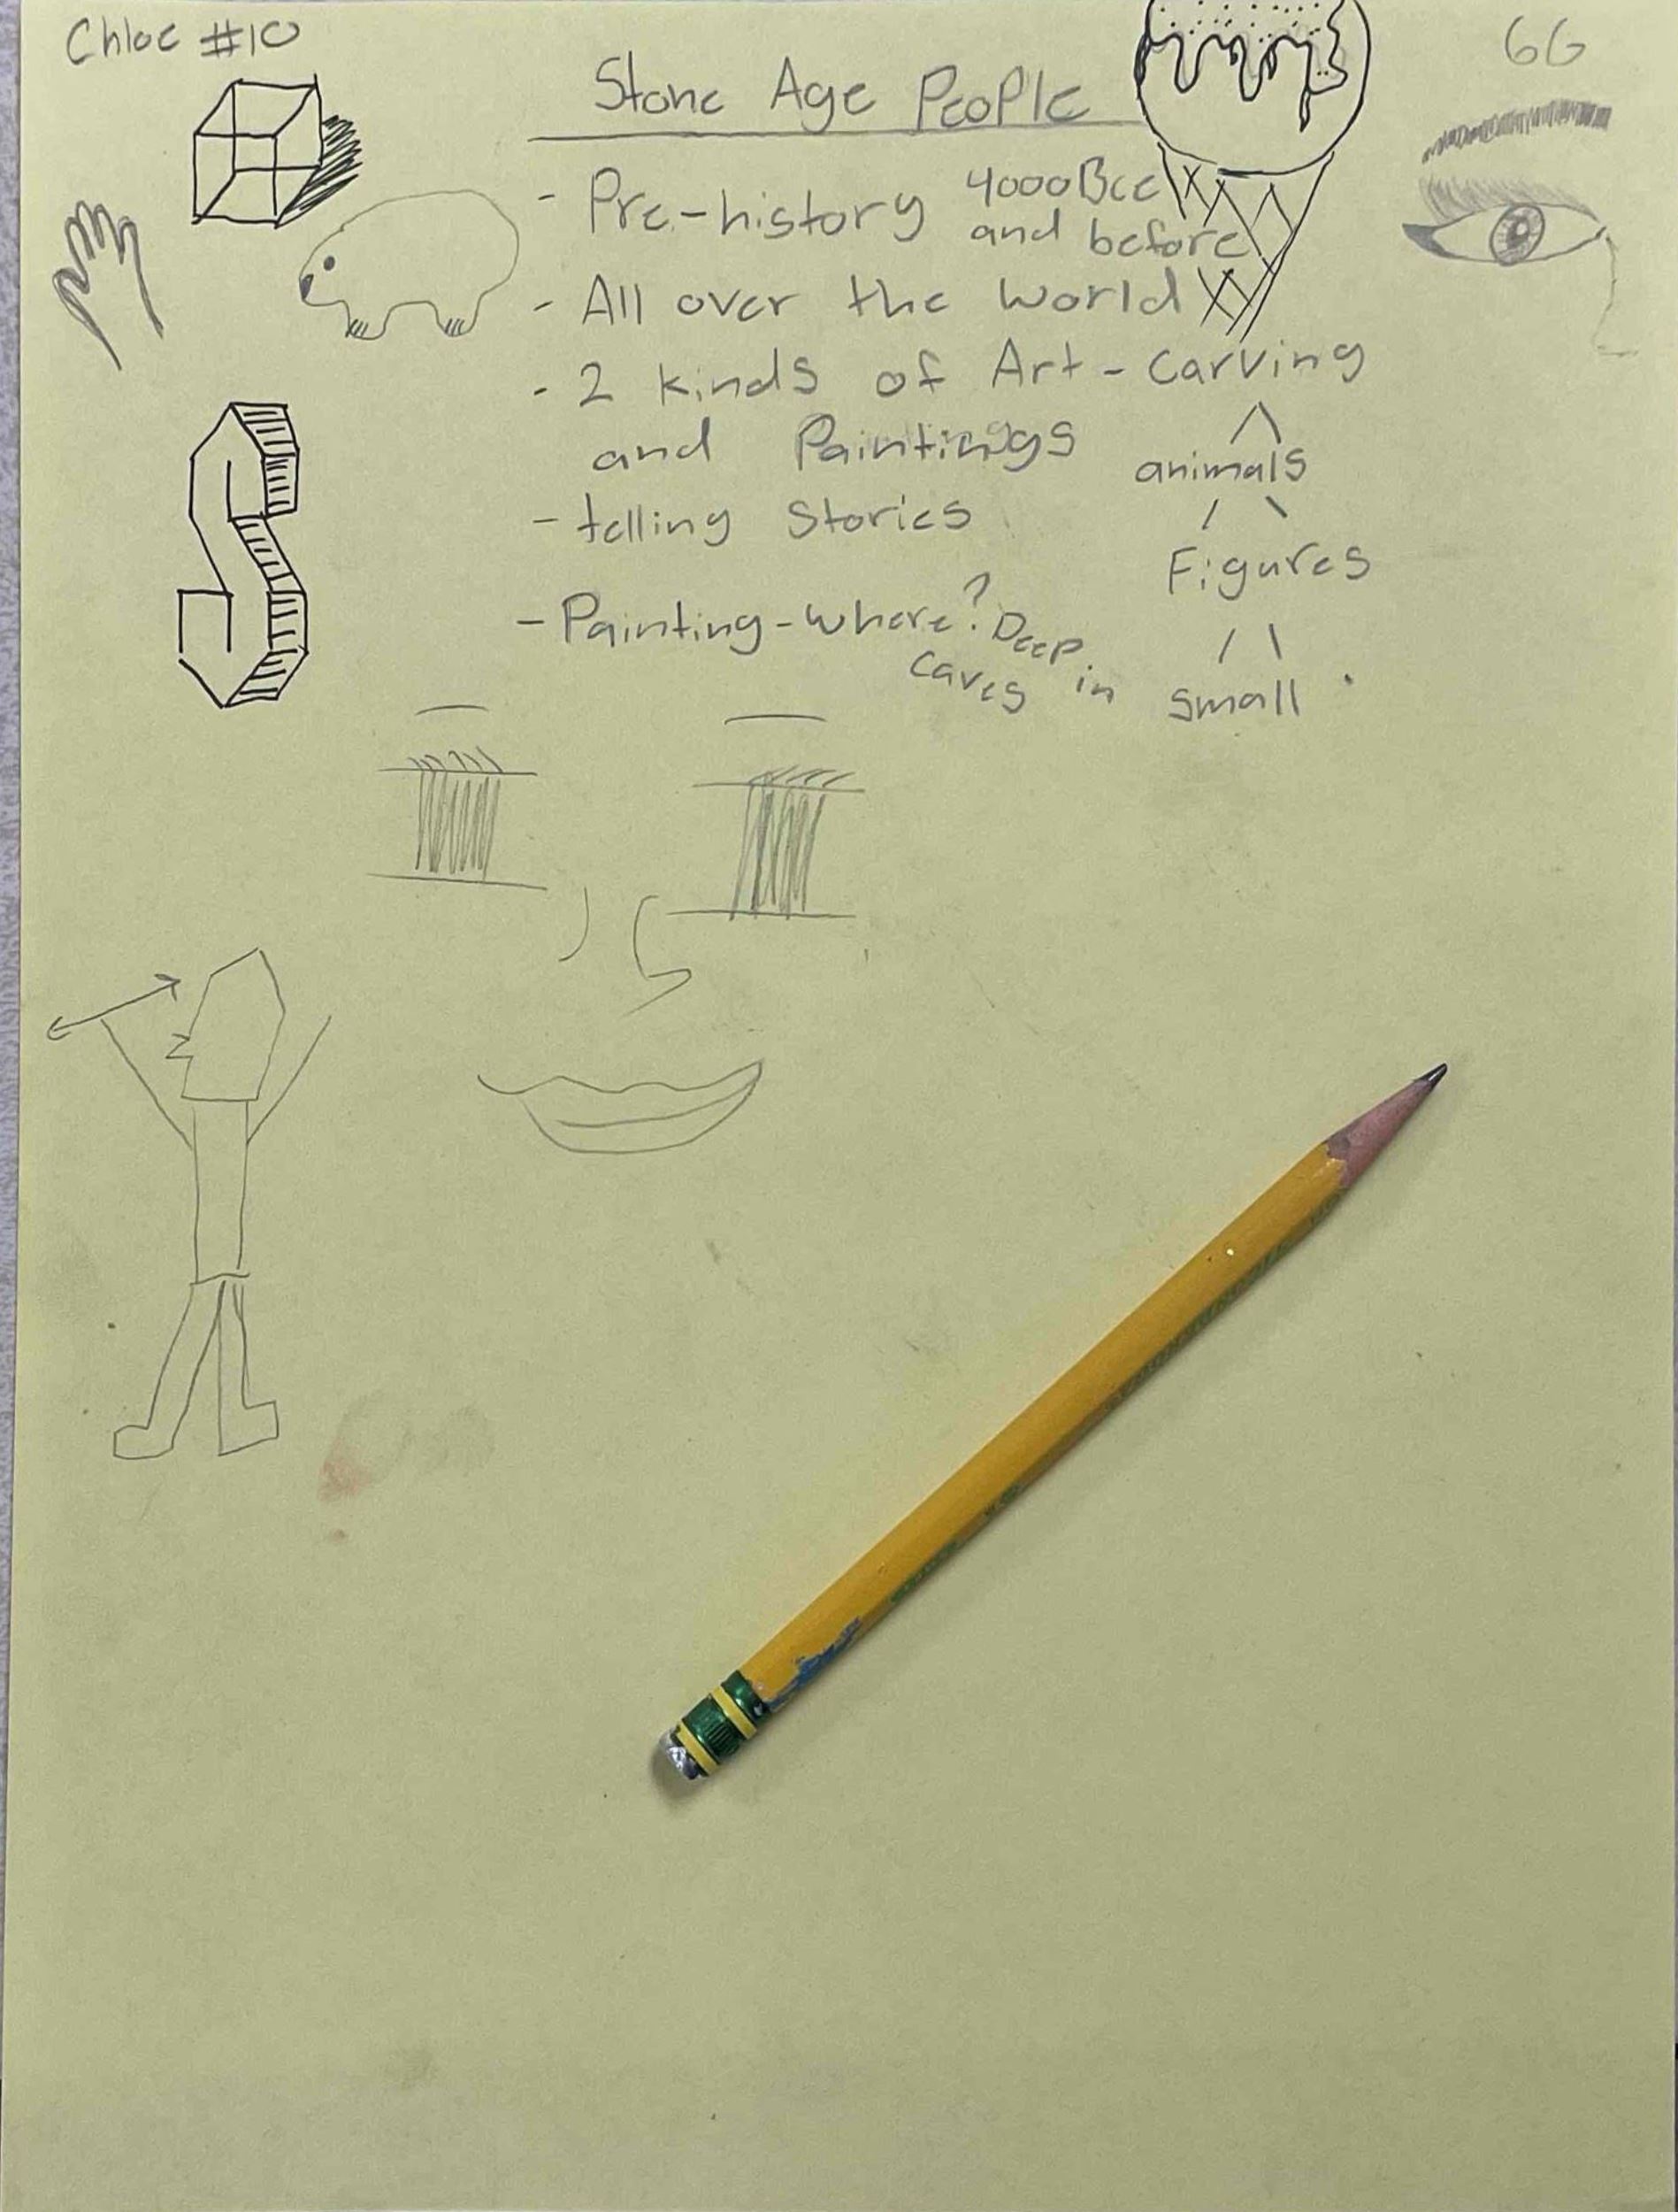 Chloe #10
6G
Stone Age People
- Pre-history 4000Bce
and before
- All over the World
- 2 kinds of Art - Carving
and Paintings
animals
- telling Stories
Figures
- Painting - where? Deep
caves in
small
S